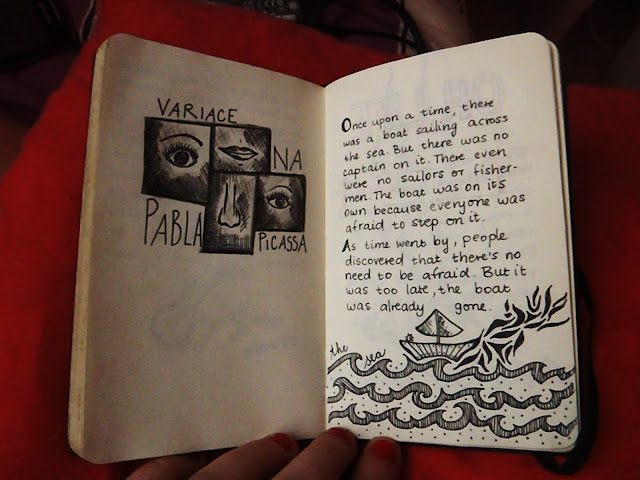 VARIACE
NA
PABLA
PICASSA
Once upon a time, there
was a boat sailing across
the sea. But there was no
captain on it. There even
were no sailors or fisher-
men. The boat was on its
own because everyone was
afraid to step on it.
As time went by, people
discovered that there's no
need to be afraid. But it
was too late, the boat
was already gone.
the sea